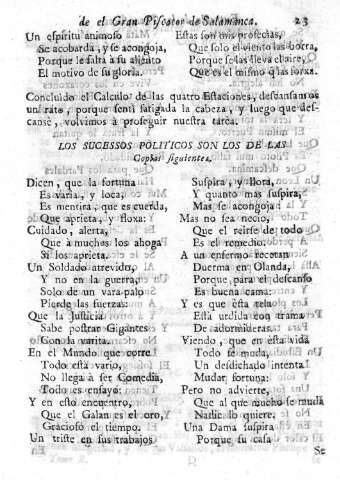 de el Gran Piscator de Salamanca. 23
Un espiritu animoso
Se acobarda, y se acongoja,
Porque le falta à su aliento
El motivo de su gloria.
Estas son mis profecias,
Que solo el viento las borra,
Porque se las lleva el aire,
Que es el mismo q̃ las forxa.
Concluìdo el Calculo de las quatro Estaciones, descansamos
un rato, porque sentì fatigada la cabeza, y luego que des-
cansè, volvimos à proseguir nuestra tarèa.
LOS SUCESSOS POLITICOS SON LOS DE LAS
Coplas siguientes.
Dicen, que la fortuna
Es varia, y loca,
Es mentira, que es cuerda,
Que aprieta, y floxa:
Cuidado, alerta,
Que à muchos los ahoga
Si los aprieta.
Un Soldado atrevido,
Y no en la guerra,
Solo de un vara-palo
Pierde las fuerzas:
Que la Justicia
Sabe postrar Gigantes
Con la varita.
En el Mundo que corre
Todo està vario,
No llega à ser Comedia,
Todo es ensayo:
Y en esto encuentro,
Que el Galan es el oro,
Gracioso el tiempo.
Un triste en sus trabajos
Suspira, y llora,
Y quanto mas suspira,
Mas se acongoja:
Mas no sea necio,
Que el reirse de todo
Es el remedio.
A un enfermo recetan
Duerma en Olanda,
Porque para el descanso
Es buena cama:
Y es que esta tela
Està urdida con trama
De adormideras.
Viendo, que en esta vida
Todo se muda,
Un desdichado intenta
Mudar fortuna:
Pero no advierte,
Que al que mucho se muda
Nadie lo quiere.
Una Dama suspira
Porque su casa
Se